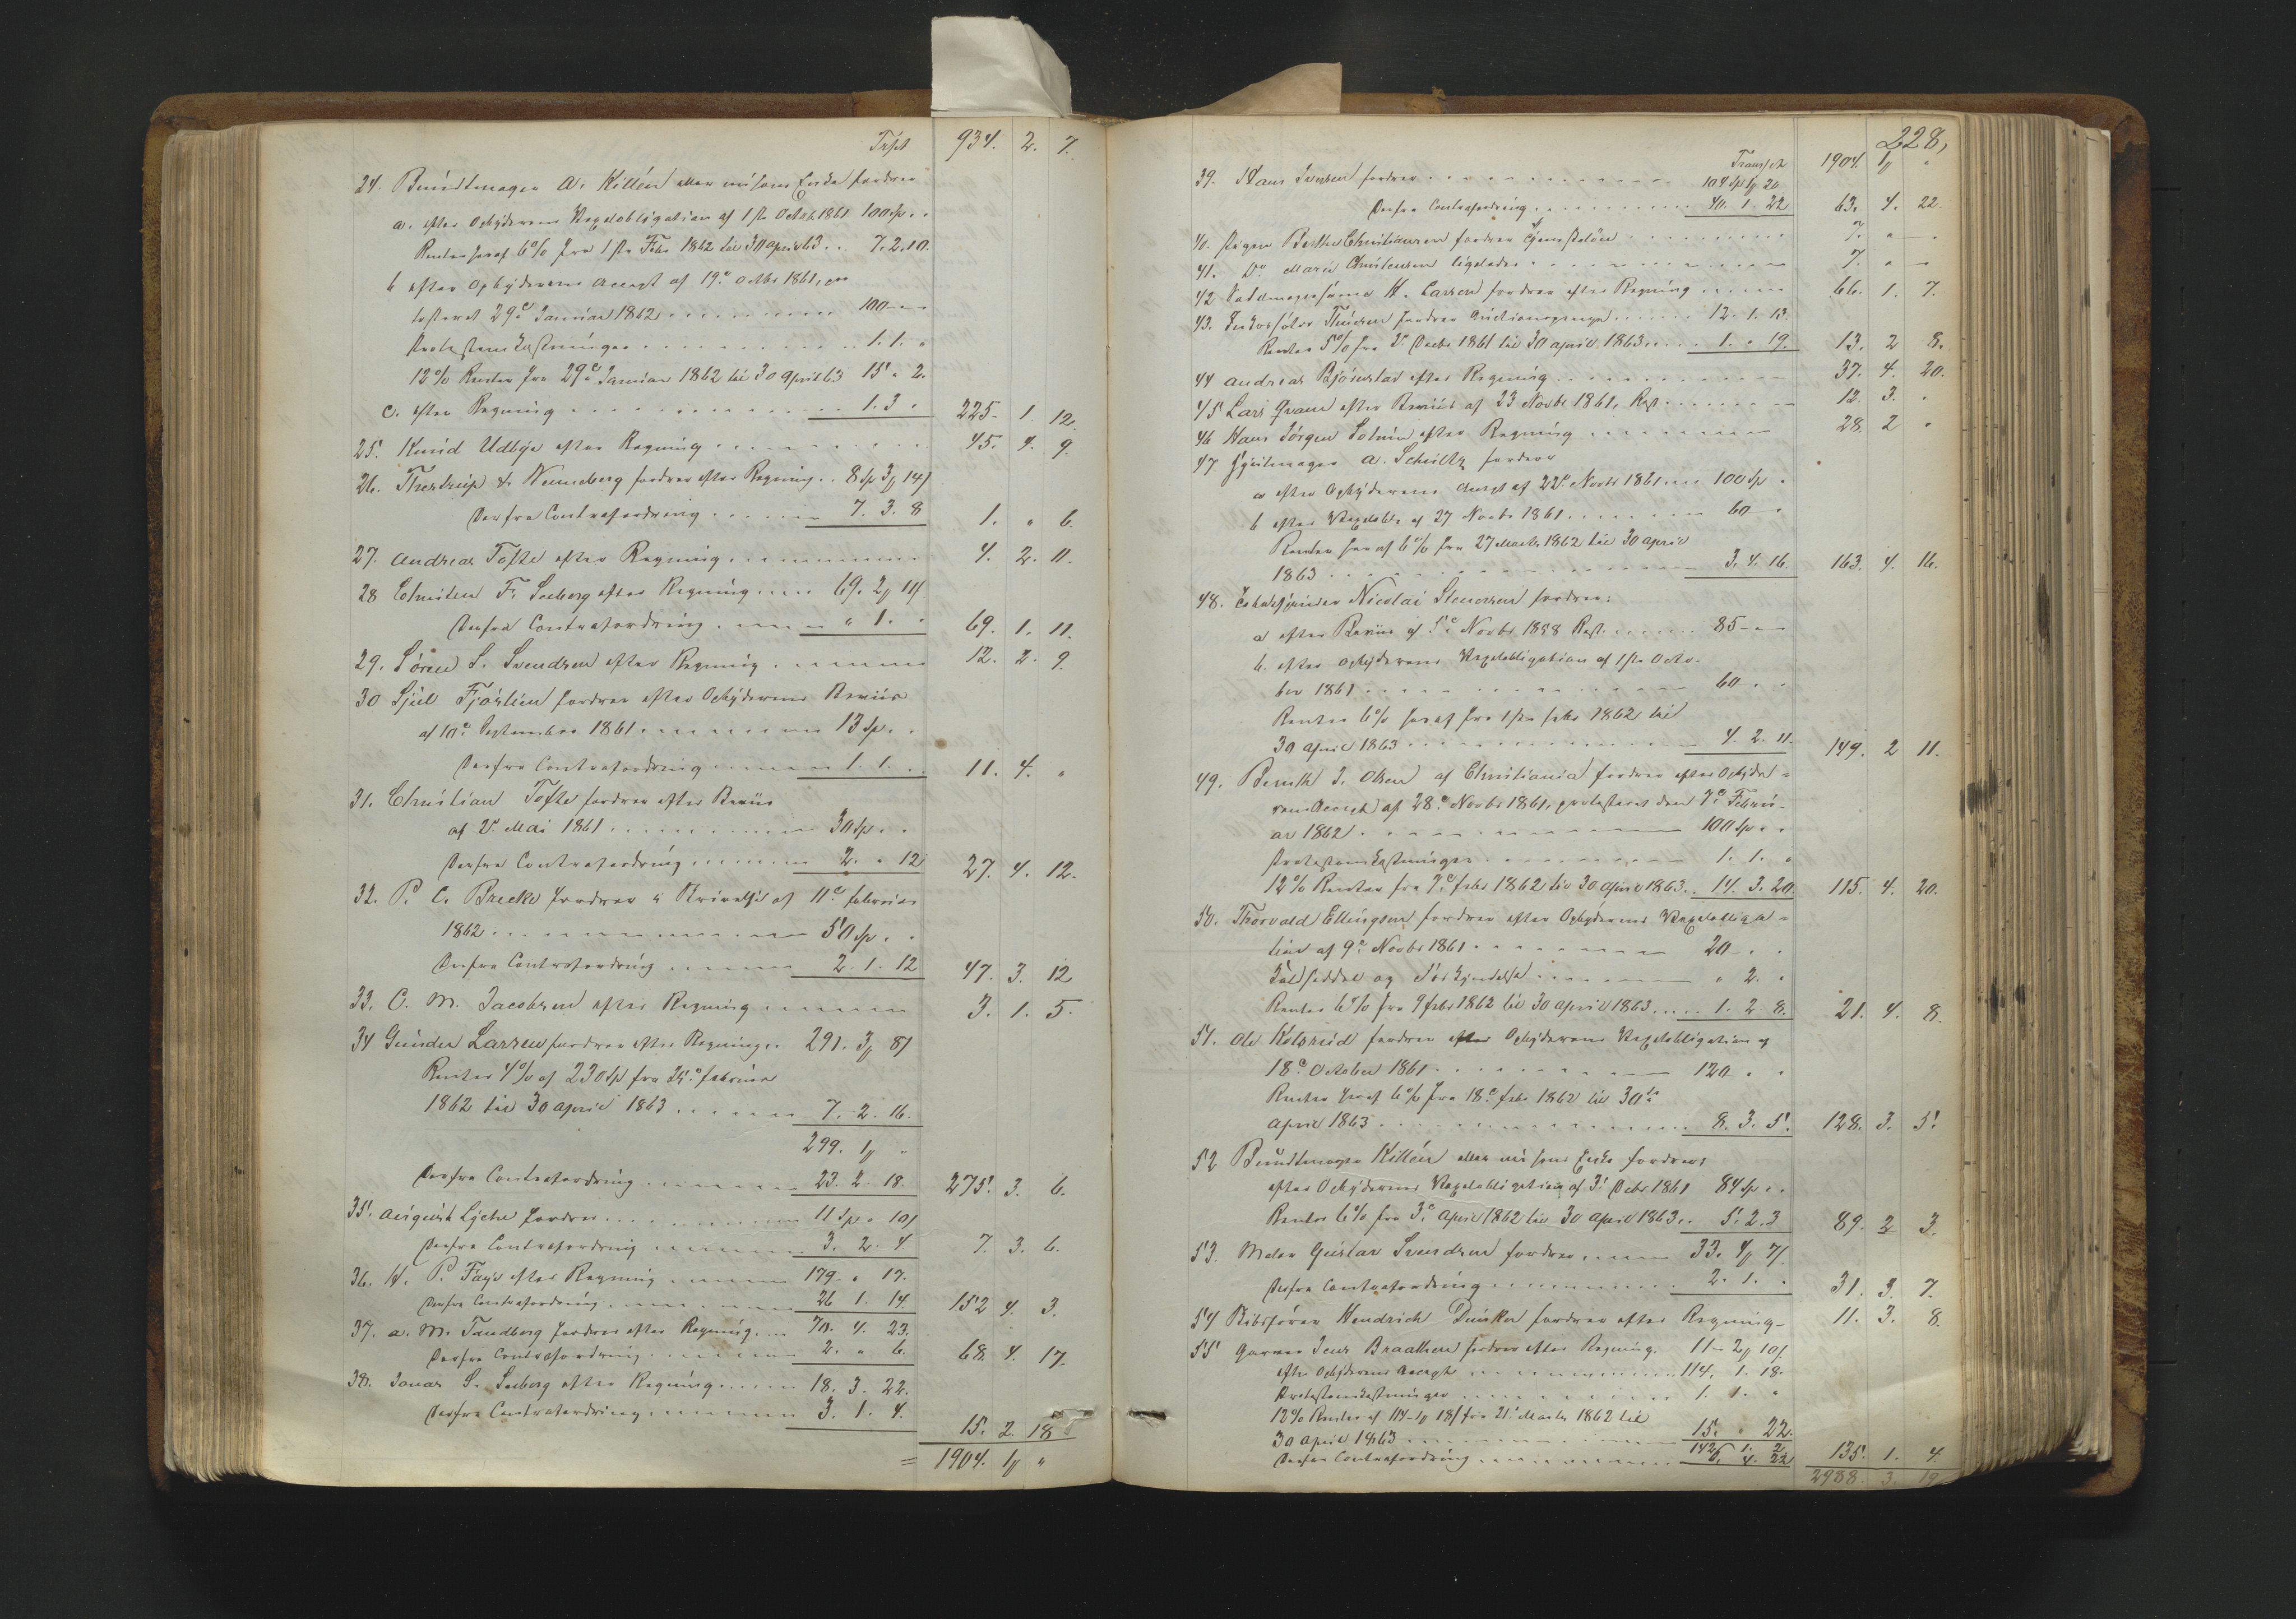 Trpt 934. 2. 7.
24. Bundtmager A. Killén eller nu hans Enke fordrer
a. efter Opbyderens Vexelobligation af 1ste Octob. 1861 100 Sp. " "
Renter heraf 6% fra 1ste Febr 1862 til 30 april 63 . . 7. 2. 10.
b efter Opbyderens Accept af 19de Octbr 1861, pro
testeret 29de Januar 1862 100 " "
Protestomkostninger 1. 1. "
12% Renter fra 29de Januar 1862 til 30 April 63 15 " 2.
c. efter Regning 1. 3 " 225. 1. 12.
25. Knud Udbye efter Regning 45. 4. 9.
26. Therstrup & Wenneberg fordrer efter Regning . . 8 Sp 3 14
Derfra Contrafordring 7. 3. 8 1. " 6.
27. Andreas Tofte efter Regning 4. 2. 11.
28 Christen F. Seeberg efter Regning 69. 2 11
Derfra Contrafordring " 1. " 69. 1. 11.
29. Sören S. Svendsen efter Regning 12. 2. 9.
30 Sjul Fjöslien fordrer efter Opbyderens Beviis
af 10de September 1861 13 Sp. " "
Derfra Contrafordring 1. 1. " 11. 4. "
31. Christian Tofte fordrer efter Beviis
af 2. Mai 1861 30 Sp. " "
Derfra Contrafordring 2. " 12 27. 4. 12.
32. P. C. Brecke fordrer af 11te februar
1862 50 Sp. " "
Derfra Contrafordring 2. 1. 12 47. 3. 12
33. C. M. Jacobsen efter Regning 3. 1. 5.
34 Gunder Larsen fordrer efter Regning . . 291. 3 8
Renter 4% af 230 Sp fra 25de februar
1862 til 30 april 1863 7. 2. 16.
299. 1 "
Derfra Contrafordring 23. 2. 18. 275. 3. 6.
35. August Lyche fordrer 11 Sp " 10
Derfra Contrafordring 3. 2. 4. 7. 3. 6.
36. H. P. Faye efter Regning 179 " 17.
Derfra Contrafordring 26 1. 14. 152 4. 3.
37. A. M. Tandberg fordrer efter Regning 70. 4. 23.
Derfra Contrafordring 2. " 6. 68. 4. 17.
38. Jonas S. Seeberg efter Regning 18. 3. 22.
Derfra Contrafordring 3. 1. 4. 15. 2. 18
= 1904. 1 "
228,
Transp 1904. 1 "
39. Hans Iversen fordrer 104 Sp 1 20
Derfra Contrafordring 40. 1. 22 63. 4. 22.
40. Pigen Berthe Christiansen fordrer Tjenesteløn 7. " "
41. Do Marie Christensen ligeledes 7. " "
42 Sadelmagersvend H. Larsen fordrer efter Regning 66. 1. 7.
43. Thuesen fordrer Auctionspenge 12. 1. 13.
Renter 5% fra 2. Decbr 1861 til 30 april 1863 1. " 19. 13. 2 8.
44 Andreas Björnstad efter Regning 37. 4. 20.
45 Lars Qvam efter Beviis af 23 Novbr 1861, Rest 12. 3. "
46 Hans Jörgen efter Regning 28. 2 "
47 A. Schultz fordrer
a efter Opbyderens Accept af 22de Novbr 1861 100 Sp "
b efter Vexeloblg af 27 Novbr 1861 60 "
Renter heraf 6% fra 27 Marts 1862 til 30 april
1863 3. 4. 16. 163. 4. 16.
48. Nicolai Stenersen fordrer:
a efter Beviis af 5te Novbr 1858 Rest 85 "
b. efter Opbyderens Vexelobligation af 1ste Octo-
ber 1861 60 " "
Renter 6% heraf fra 1ste febr 1862 til
30 april 1863 4. 2. 11. 149. 2 11.
49. Bernth J. Olsen af Christiania fordrer efter Opbyde-
rens Accept af 28de Novbr 1861, protesteret den 7de Februar
ar 1862 100 Sp " "
Protestomkostninger 1. 1. "
12% Renter fra 7de febr 1862 til 30 april 1863 . . 14. 3. 20. 115. 4. 20.
50. Thorvald Ellingsen fordrer efter Opbyderens Vexelobliga-
tion af 9de Novbr 1861 20 " "
og " 2. "
Renter 6% fra 9 febr 1862 til 30 april 1863 1. 2 8. 21. 4. 8.
51. Ole fordrer efter Opbyderens Vexelobligation af
18de October 1861 120 " "
Renter heraf 6% fra 18de febr 1862 til 30te
april 1863 8. 3. 5. 128. 3. 5.
52 Bundtmager Killén eller nu hans Enke fordrer:
efter Opbyderens Vexelobligation af 3. Octbr 1861 84 Sp " "
Renter 6% fra 3de april 1862 til 30 april 1863 . . 5. 2. 3 89. 2 3.
53. Maler Gustav Svendsen fordrer 33. 4 7
Derfra Contrafordring 2. 1. " 31. 3. 7.
54 Skibsfører Hendrich Dunker fordrer efter Regning 11. 3. 8.
55 Garver Jens Braathen fordrer efter Regning. 11 2 10
efter Opbyderens Accept 114. 1. 18.
Protestomkostninger 1. 1. "
12% Renter af 114 1 18 fra 21. Marts 1862 til
30 april 1863 15. " 22.
142. 1. 2
Derfra Contrafordring 6. 4. 22 135. 1. 4.
2988. 3. 19